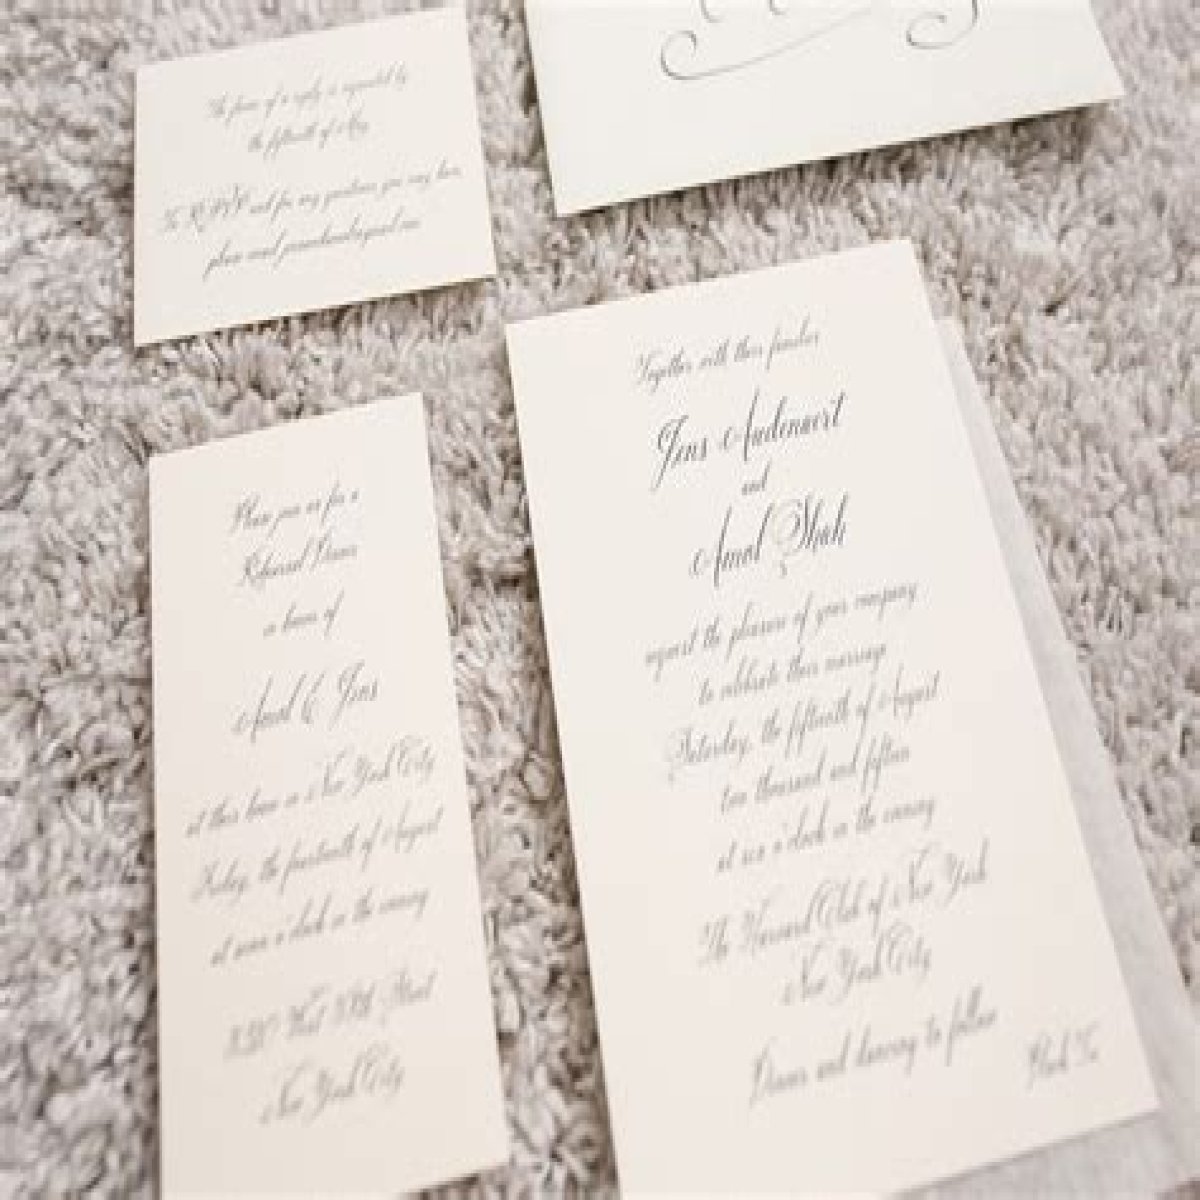 The favor of a reply is requested by
the fifteenth of May
To RSVP and for any questions you may have,
please email
Please join us for a
Rehearsal Dinner
in honor of
Amol & Jens
at their home in New York City
Friday, the fourteenth of August
at seven o'clock in the evening
West Street
New York City
Together with their families
Jens Audenaert
and
Amol Shah
request the pleasure of your company
to celebrate their marriage
Saturday, the fifteenth of August
two thousand and fifteen
at six o'clock in the evening
The Harvard Club of New York
New York City
Dinner and dancing to follow
Black Tie